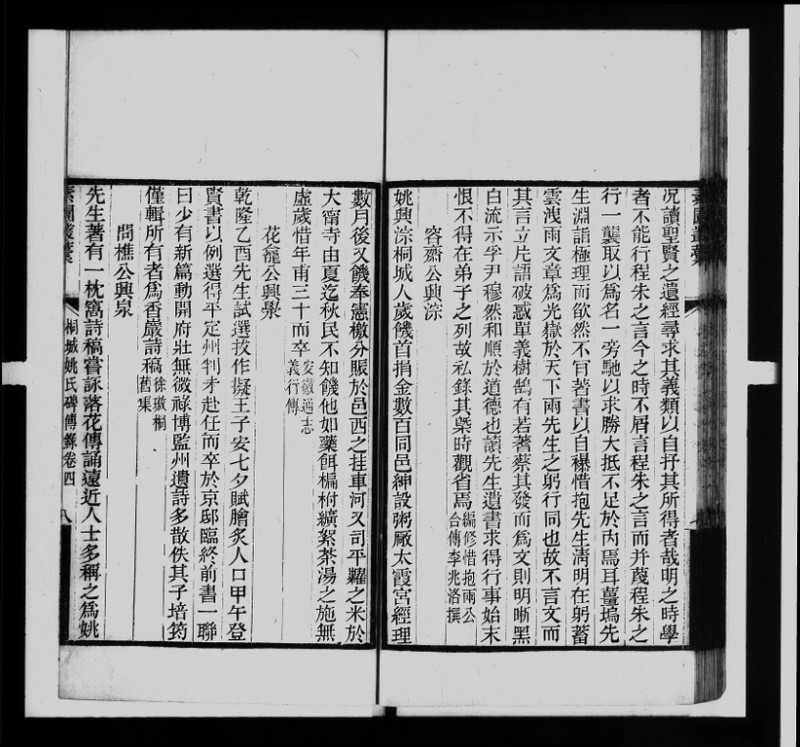 況讀聖賢之遺經尋求其義類以自抒其所得者哉明之時學
者不能行程朱之言今之時不屑言程朱之言而并蔑程朱之
行一襲取以爲名一旁馳以求勝大抵不足於內焉耳薑塢先
生淵詣極理而欿然不肎著書以自襮惜抱先生淸明在躬蓄
雲洩雨文章爲光嶽於天下兩先生之躬行同也故不言文而
其言立片語破惑單義樹鵠有若蓍蔡其發而爲文則明晰黑
白流示孚尹穆然和順於道德也讀先生遺書求得行事始末
恨不得在弟子之列故私錄其槩時觀省焉編修惜抱兩公合傳李兆洛撰
容齋公興淙
姚興淙桐城人歲饑首捐金數百同邑紳設粥厰太霞宮經理
數月後又饑奉憲檄分賑於邑西之挂車河又司平糶之米於
大甯寺由夏迄秋民不知饑他如藥餌楄柎纊絮茶湯之施無
虛歲惜年甫三十而卒安徽通志義行傳
花龕公興㵗
乾隆乙酉先生試選拔作擬王子安七夕賦膾炙人口甲午登
賢書以例選得平定州判才赴任而卒於京邸臨終前書一聯
曰少有新篇動開府壯無微祿博監州遺詩多散佚其子培筠
僅輯所有者爲香巖詩稿徐璈桐舊集
問樵公興泉
先生著有一枕窩詩稿嘗詠落花傳誦遠近人士多稱之爲姚
桐城姚氏碑傳錄卷四 八